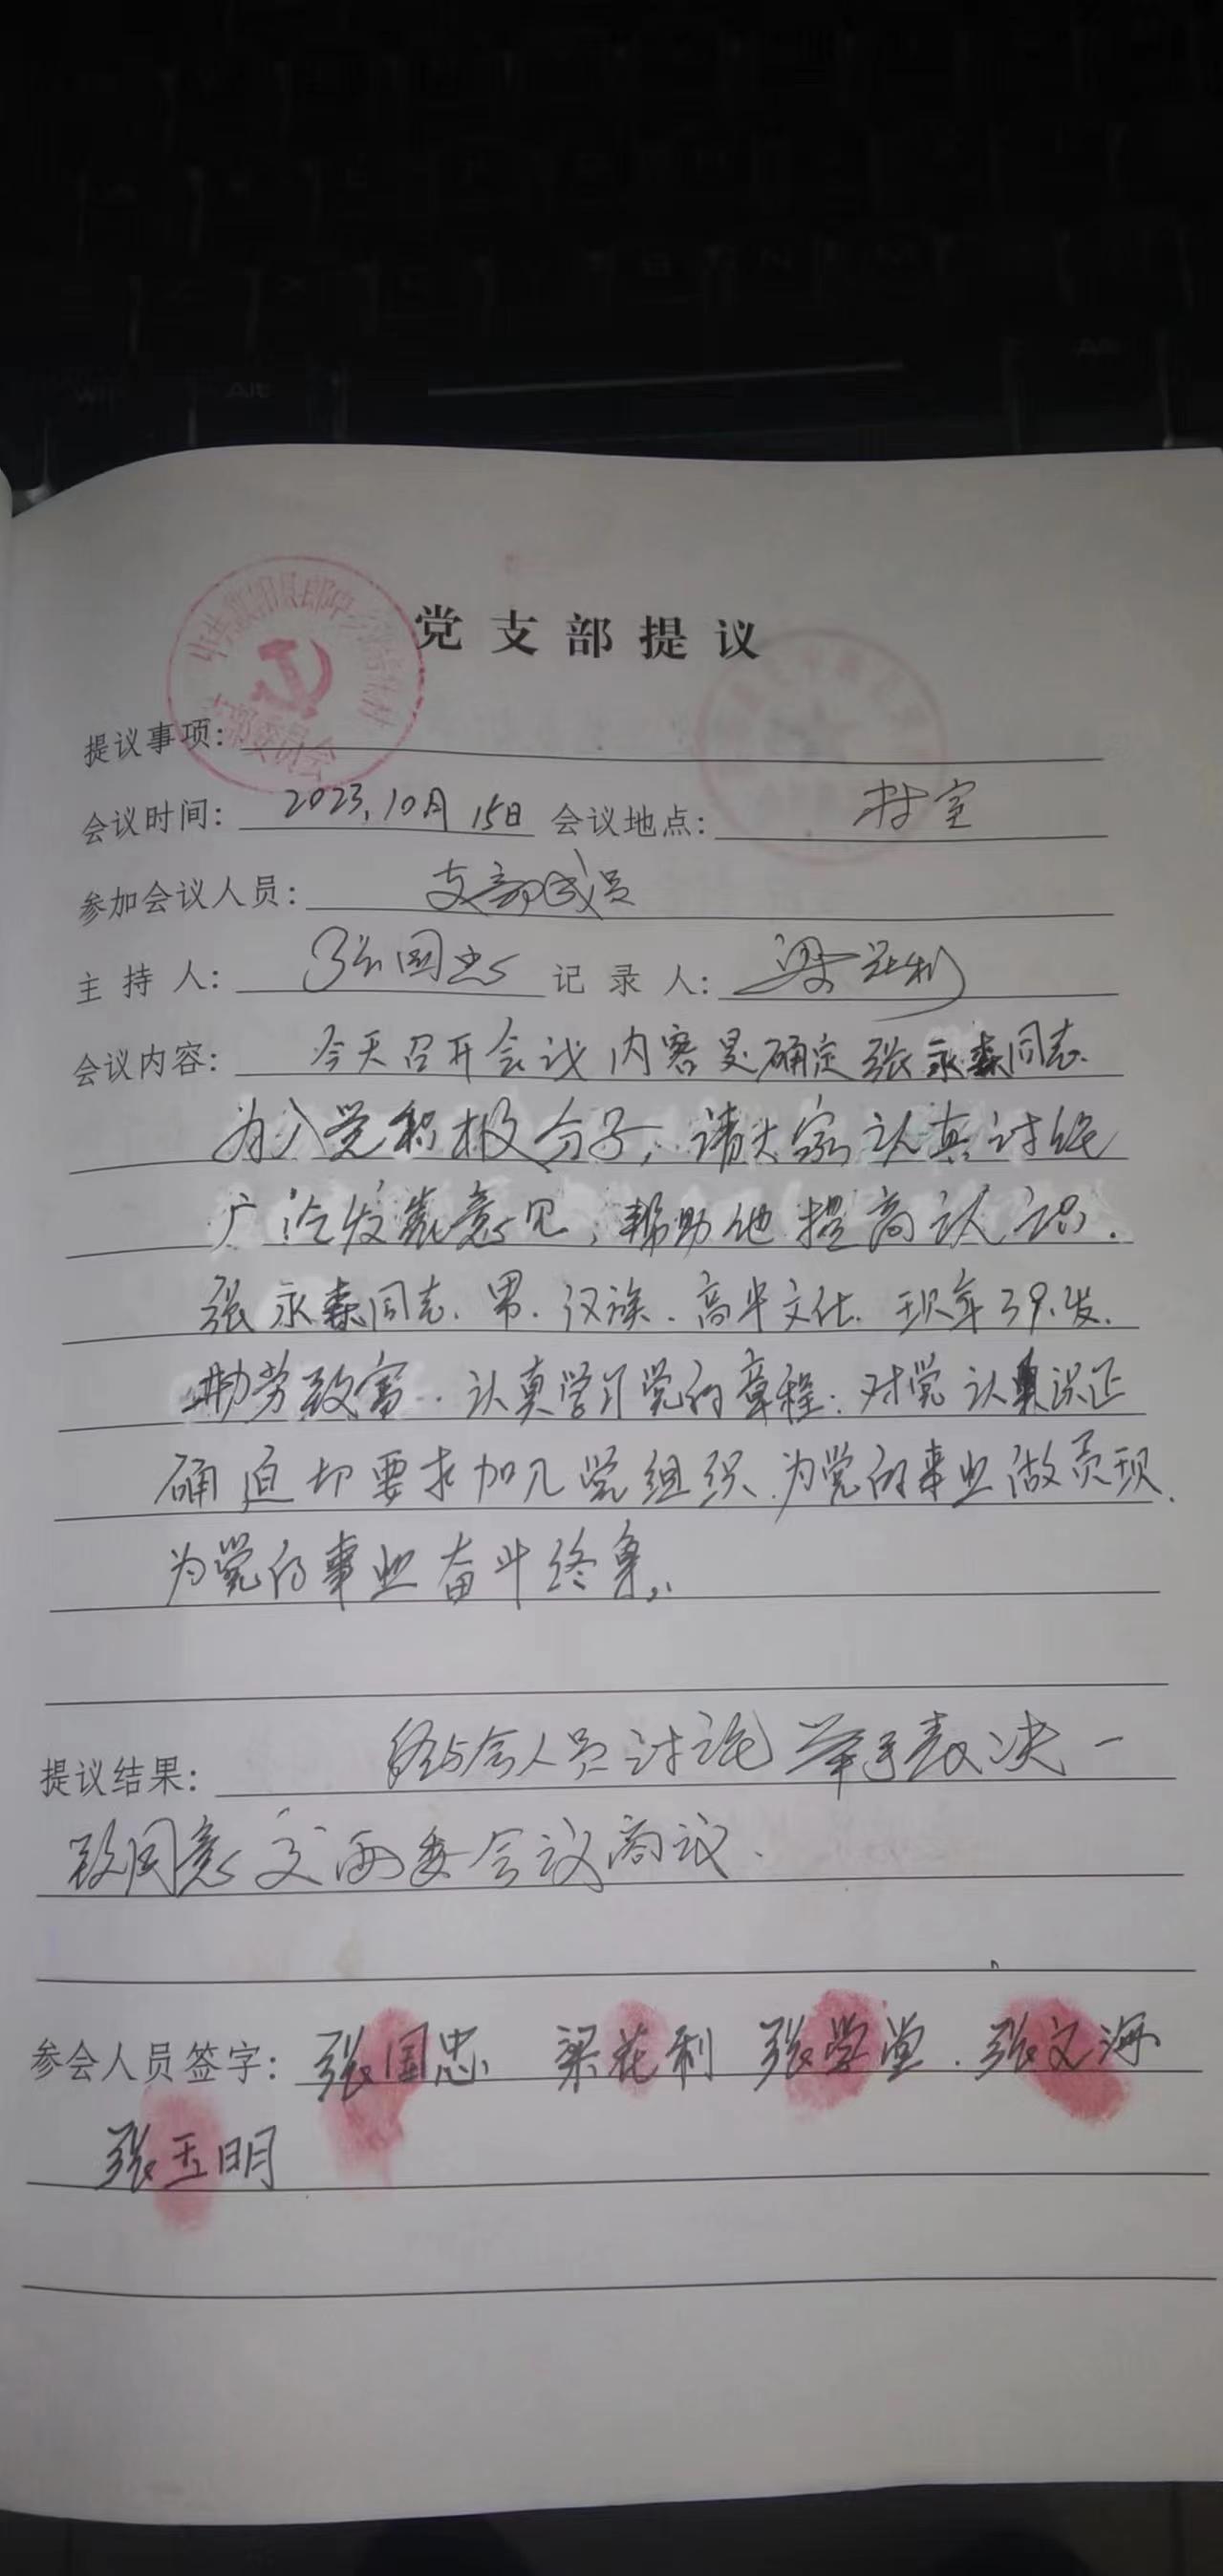 党支部提议
提议事项:
会议时间: 2023.10月15日 会议地点: 村室
参加会议人员: 支部成员
主持人: 张国忠 记录人: 梁花利
会议内容: 今天召开会议内容是确定张永森同志
为入党积极分子,请大家认真讨论
广泛发表意见,帮助他提高认识.
张永森同志.男.汉族.高中文化.现年39岁.
勤劳致富.认真学习党的章程.对党认真识正
确迫切要求加入党组织.为党的事业做贡现.
为党的事业奋斗终身.
提议结果: 经与会人员讨论举手表决一
致同意交两委会议商议.
参会人员签字: 张国忠 梁花利 张学堂.张文海
张玉明